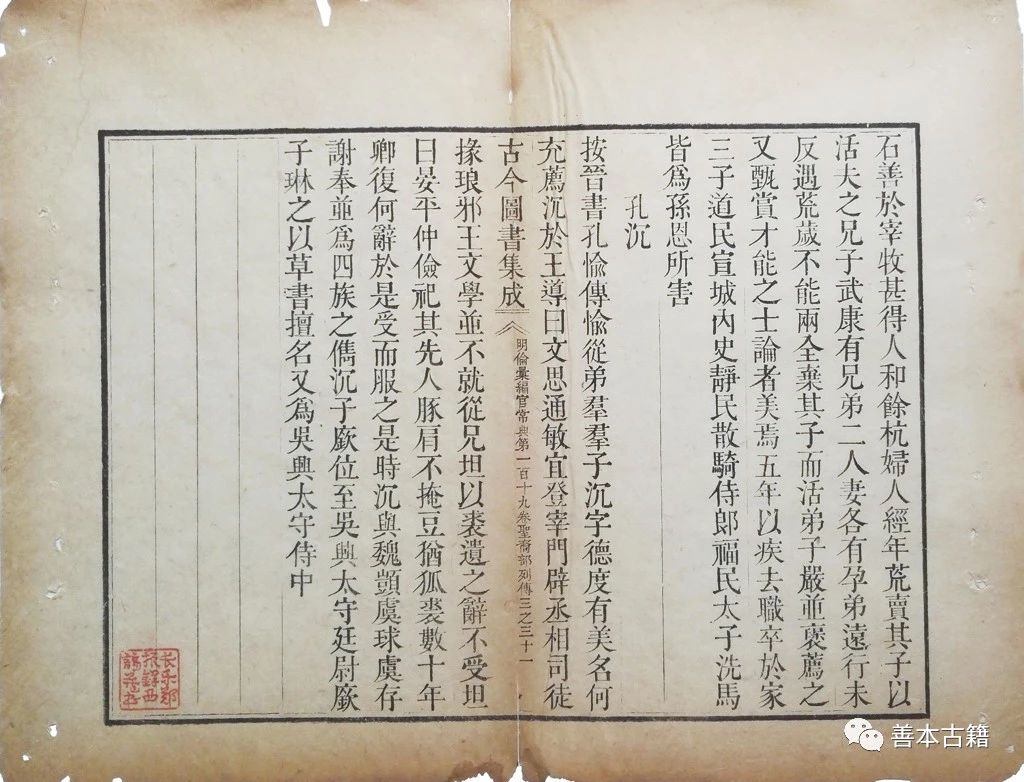 石善於宰牧甚得人和餘杭婦人經年荒賣其子以
活夫之兄子武康有兄弟二人妻各有孕弟遠行未
反遇荒歲不能兩全棄其子而活弟子嚴並褒薦之
又甄賞才能之士論者美焉五年以疾去職卒於家
三子道民宣城內史靜民散騎侍郎福民太子洗馬
皆爲孫恩所害
孔沉
按晉書孔愉傳愉從弟羣羣子沉字德度有美名何
充薦沉於王導曰文思通敏宜登宰門辟丞相司徒
古今圖書集成
明倫彙編官常典第一百十九卷聖裔部列傳三之三十一
掾琅邪王文學並不就從兄坦以裘遺之辭不受坦
曰晏平仲儉祀其先人豚肩不掩豆猶狐裘數十年
卿復何辭於是受而服之是時沉與魏顗虞球虞存
謝奉並爲四族之儁沉子廞位至吳興太守廷尉廞
子琳之以草書擅名又爲吳興太守侍中
长乐郑
振铎西
諦藏书
善本古籍